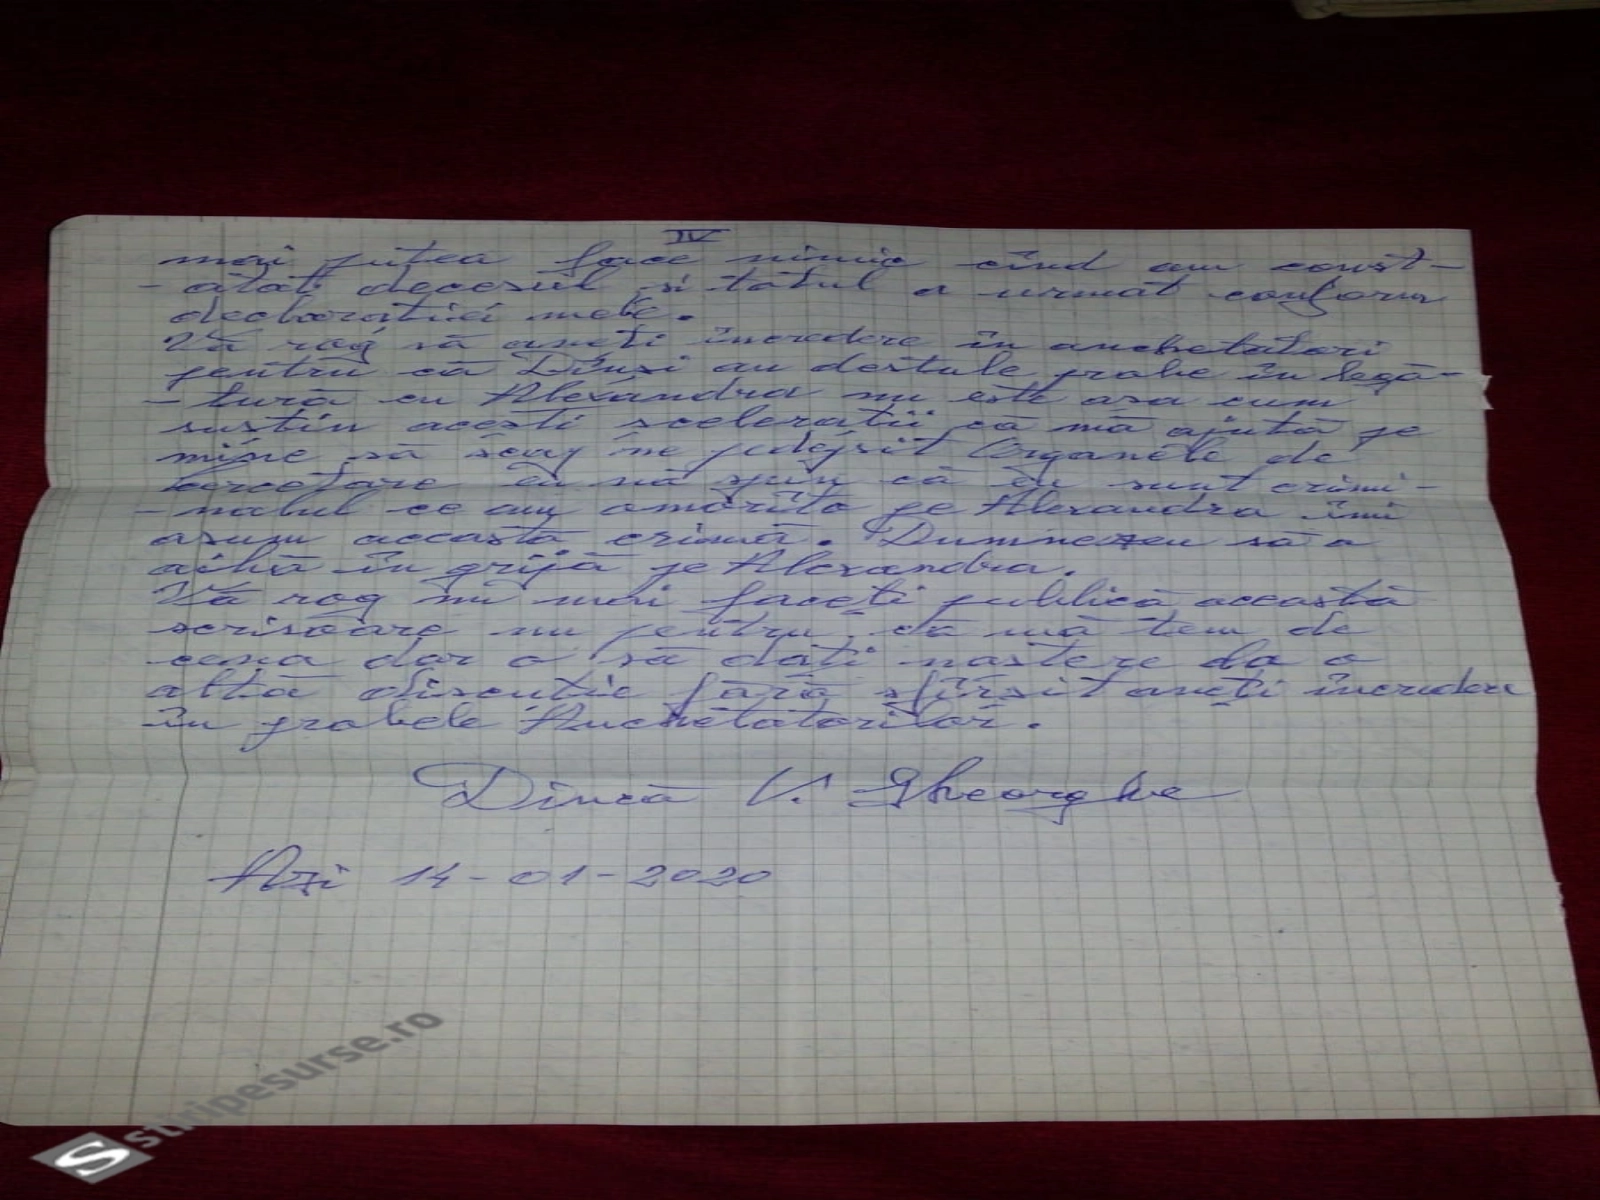 IV
mai putea face nimic cînd am const-
- atat decesul și totul a urmat conform
declarației mele.
Vă rog să aveți încredere în anchetatori
pentru că Dînși au destule probe în legă-
- tură cu Alexandra nu este așa cum
susțin acești scelerații că mă ajută pe
mine să scap ne pedepsit Organele de
cercetare eu vă spun că eu sunt crimi-
- nalul ce am omorîto pe Alexandra îmi
asum această crimă. Dumnezeu să o
aibă în grijă pe Alexandra.
Vă rog nu mai faceți publică această
scrisoare nu pentru că mă tem de
ceva dar o să dați naștere la o
altă discuție fără sfîrșit aveți încredere
în probele Anchetatorilor.
Dincă V. Gheorghe
Azi 14-01-2020
stiripesurse.ro
S